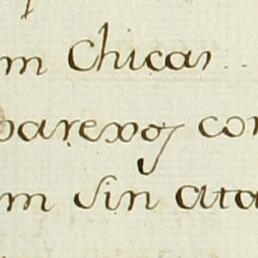 m chicas
parexos con
m sin ata